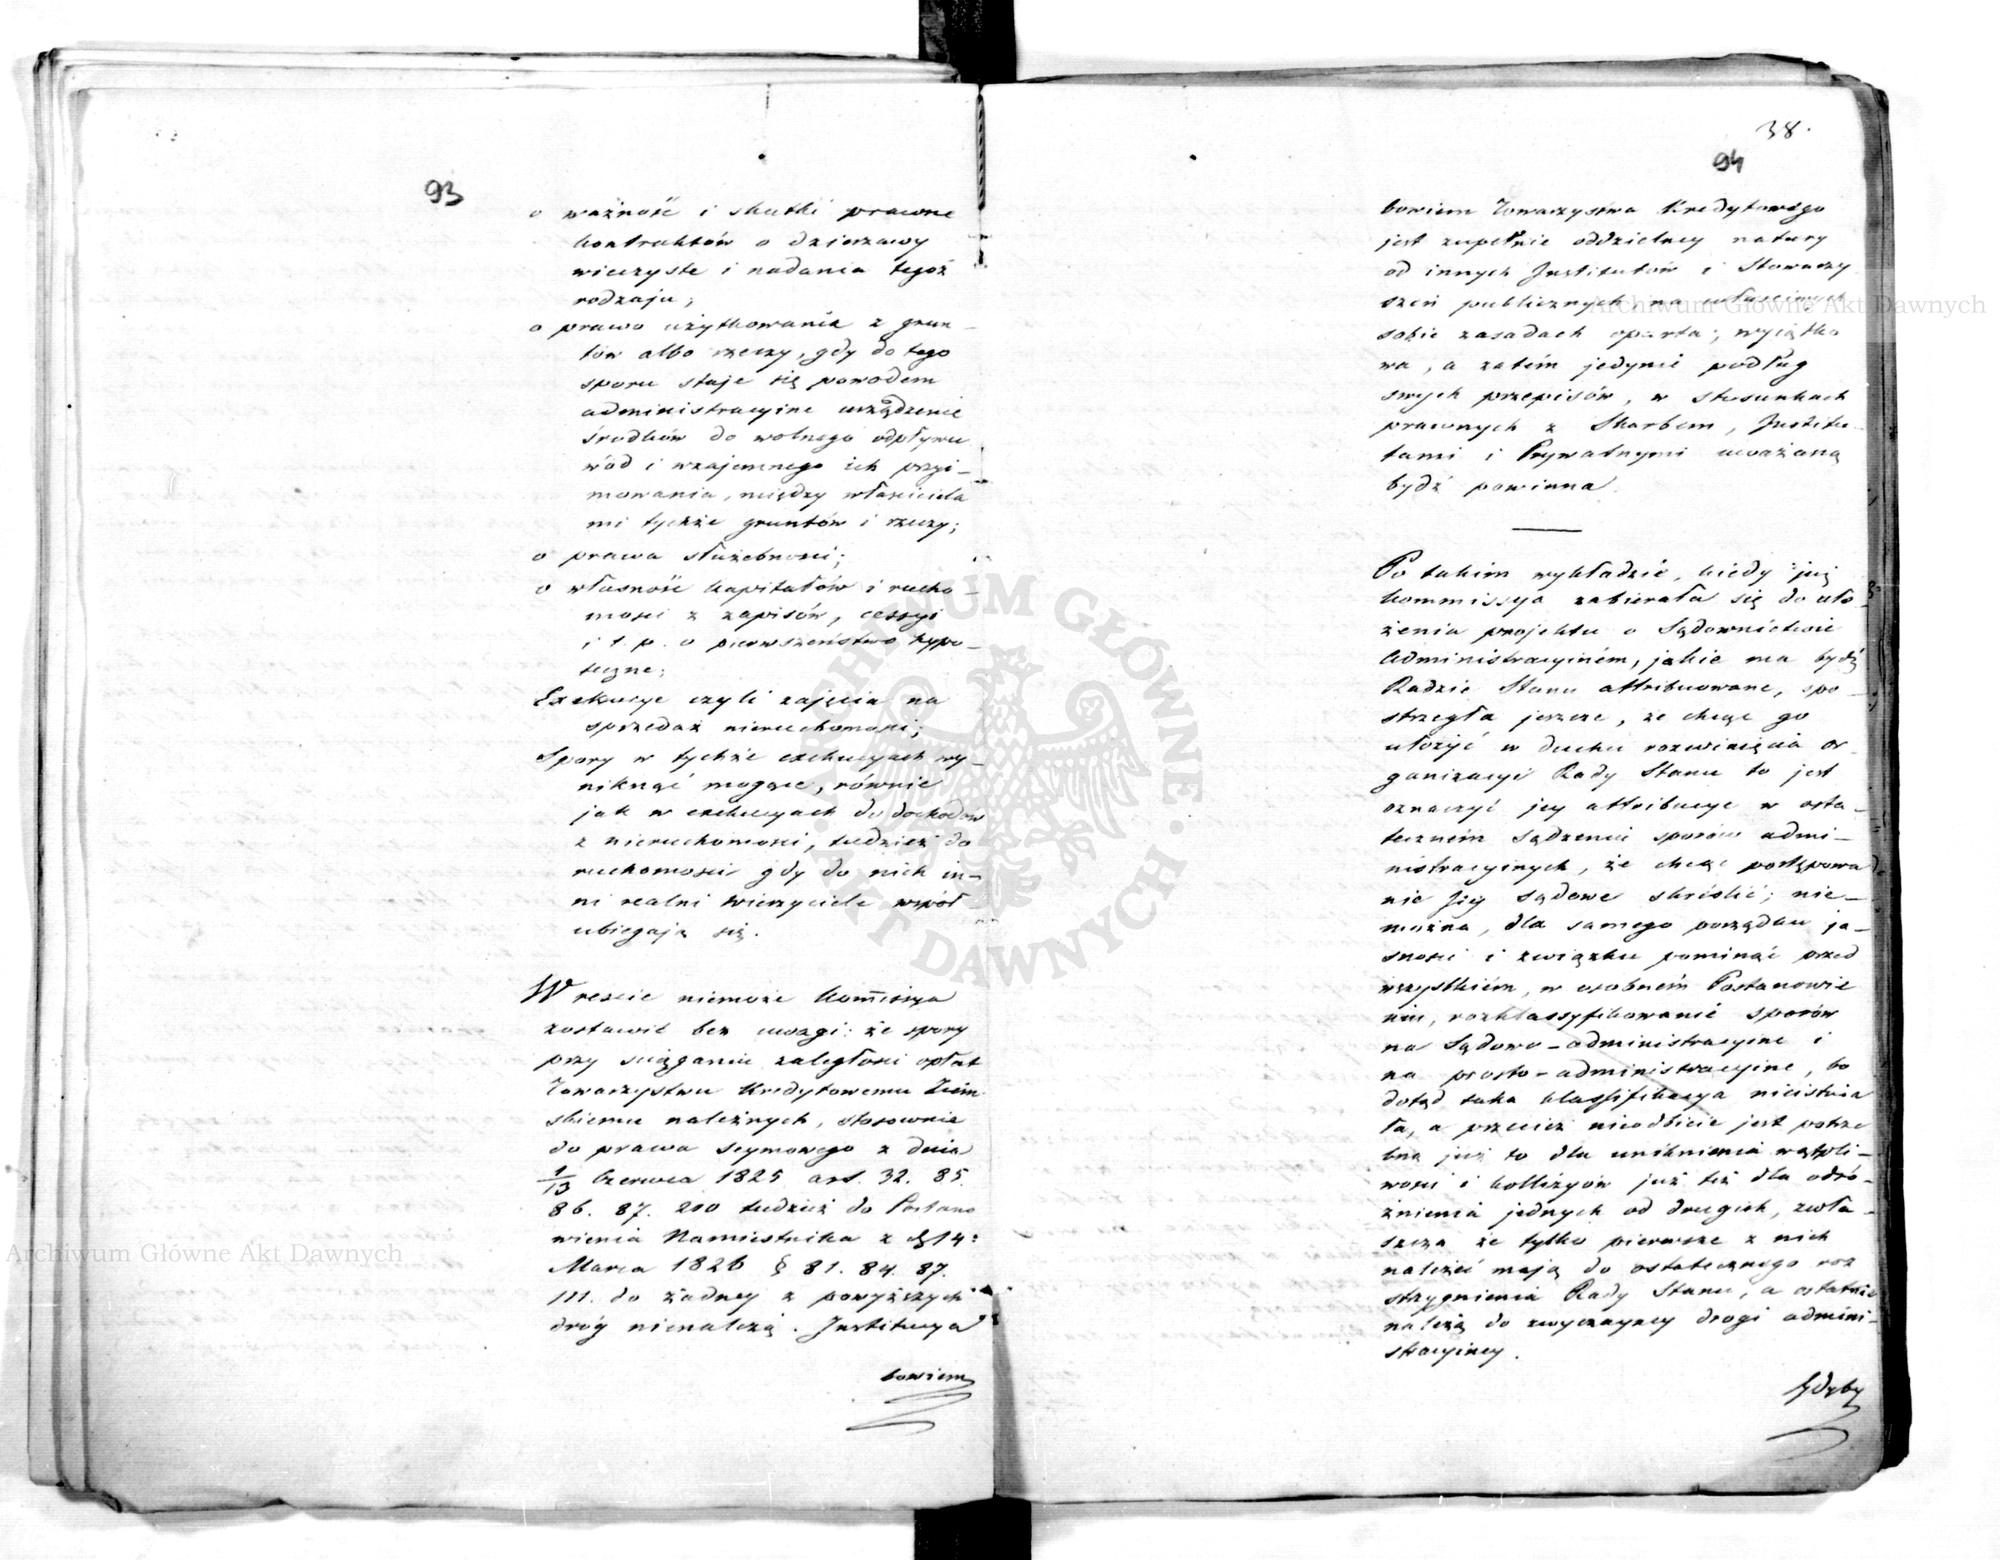 93
o ważność i skutki prawne
kontraktów o dzierżawy
wieczyste i nadania tegoż
rodzaju;
o prawo użytkowania z grun-
tów albo rzeczy, gdy do tego
sporu staje się powodem
administracyine urządzenie
środków do wolnego odpływu
wód i wzajemnego ich przyi-
mowania, między właściciela
mi tychże gruntów i rzeczy;
o prawa służebności;
o własność kapitałów i rucho-
mości z zapisów, cessyi
i t. p. o pierwszeństwo hypo-
teczne;
Exekucye czyli zajęcia na
sprzedaż nieruchomości;
Spory w tychże exekucyach wy-
niknąć mogące, równie
jak w exekucyach do dochodów
z nieruchomości, tudzież do
ruchomości gdy do nich in-
ni realni wierzyciele współ
ubiegają się.
W reście niemoże Kommissya
zostawić bez uwagi: że spory
przy ściąganiu zaległości opłat
Towarzystwu Kredytowemu Ziem
skiemu należnych, stosownie
do prawa Seymowego z dnia
1/13 Czerwca 1825 art. 32. 85.
86. 87. 210 tudzież do Postano
wienia Namiestnika z d. 14:
Marca 1826 § 81. 84. 87.
111. do żadney z powyższych
dróg nienależą. Instytucya
bowiem
38.
94
bowiem Towarzystwa Kredytowego
jest zupełnie oddzielney natury
od innych Instytutów i Stowarzy
szeń publicznych, na właściwych
sobie zasadach oparta; wyiątko
wa, a zatém jedynie podług
swych przepisów, w stosunkach
prawnych z Skarbem, Instytu-
tami i Prywatnymi uważaną
bydź powinna.
Po takim wykładzie, kiedy już
Kommissya zabierała się do uło-
żenia projektu o Sądownictwie
Administracyiném, jakie ma bydź
Radzie Stanu attribuowane, spo-
strzegła jeszcze, że chcąc go
ułożyć w duchu rozwinięcia or-
ganizacyi Rady Stanu to jest
oznaczyć jey attribucye w osta-
teczném Sądzeniu sporów admi-
nistracyinych, że chcąc postępowa
nie Jey Sądowe skréślić; nie-
można, dla samego porządku ja-
sności i związku pominąć przed
wszystkiém, w osobném Postanowie
niu, rozklassyfikowanie sporów
na Sądowo-administracyine i
na prosto-administracyine, bo
dotąd taka klassyfikacya nieistnia
ła, a przecież nieodbicie jest potrze
bna już to dla uniknienia wątpli-
wości i kollizyów już też dla odró-
żnienia jednych od drugich, zwła-
szcza że tylko pierwsze z nich
należeć mają do ostatecznego roz
strzygnienia Rady Stanu, a ostatnie
należą do zwyczayney drogi admini-
stracyiney.
Gdyby
ARCHIWUM GŁÓWNE AKT DAWNYCH
Archiwum Główne Akt Dawnych
Archiwum Główne Akt Dawnych